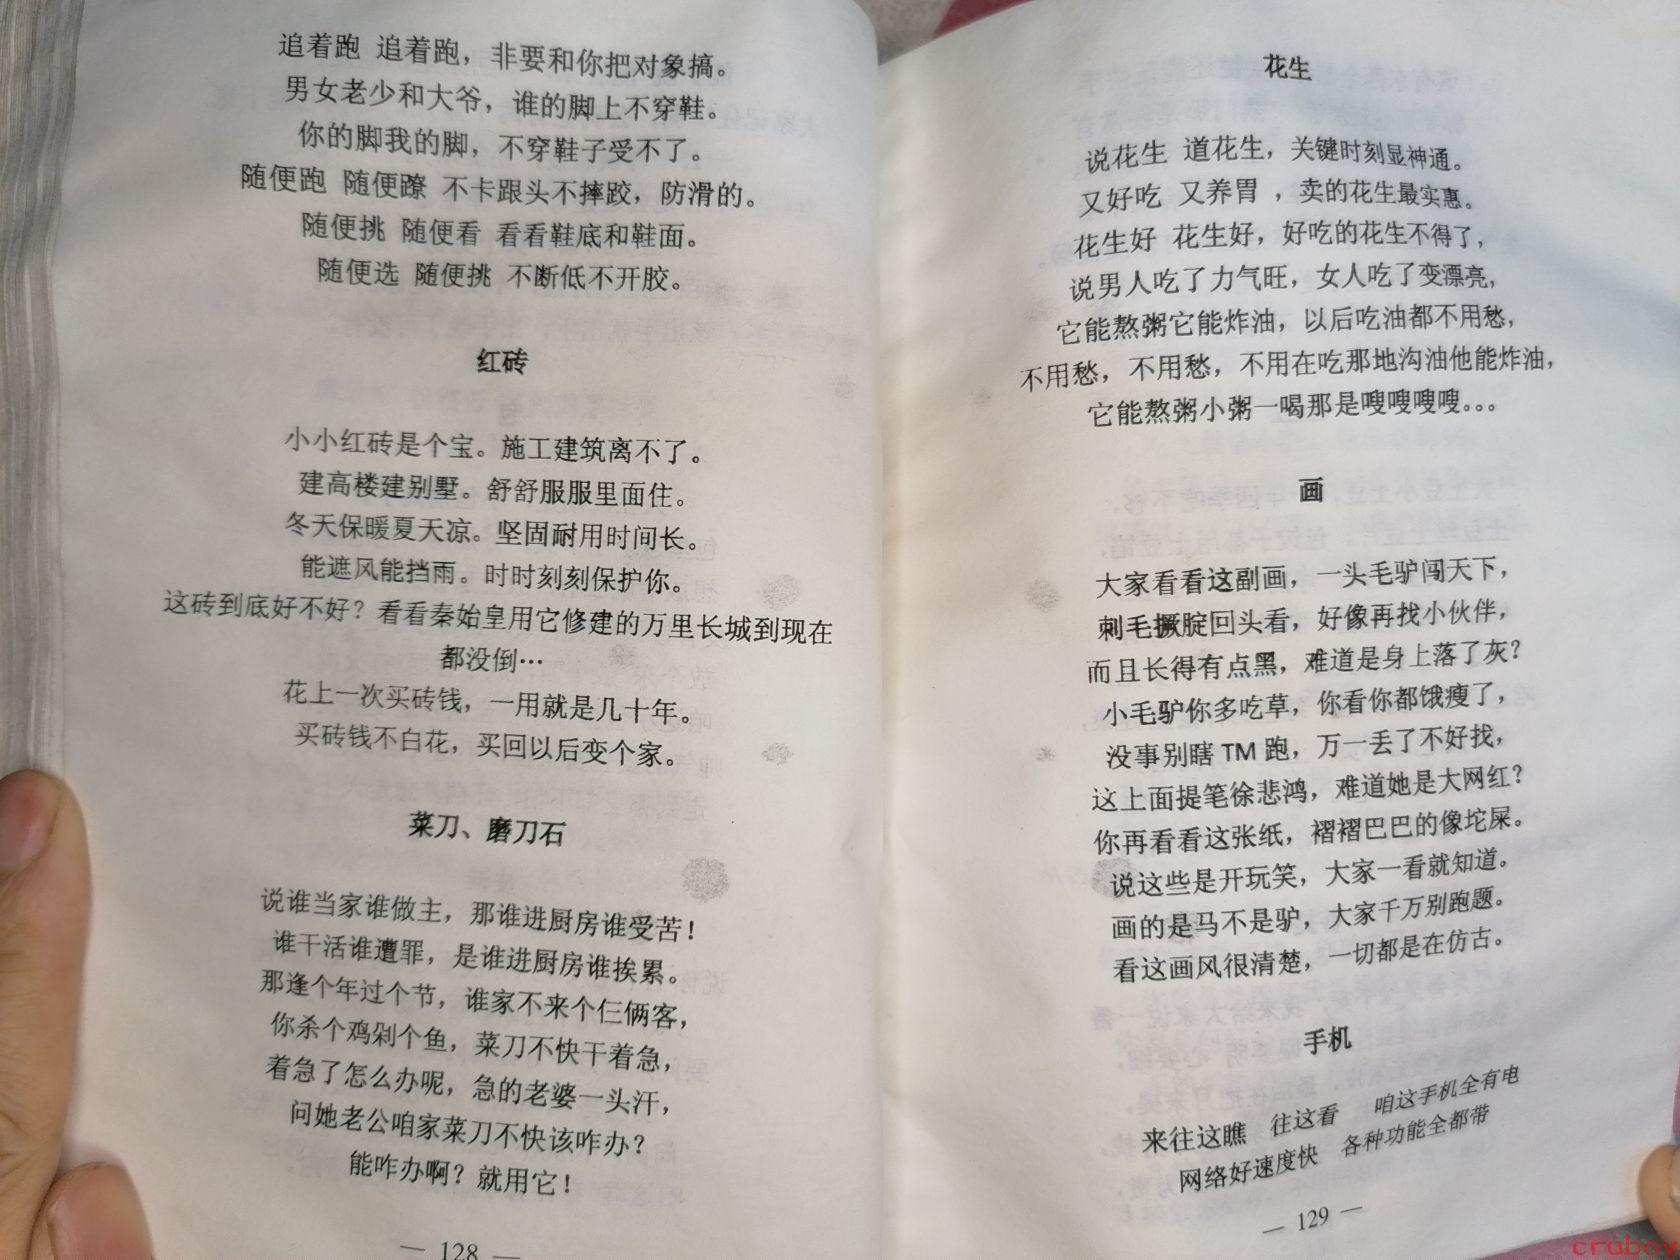 追着跑 追着跑，非要和你把对象搞。
男女老少和大爷，谁的脚上不穿鞋。
你的脚我的脚，不穿鞋子受不了。
随便跑 随便蹽 不卡跟头不摔跤，防滑的。
随便挑 随便看 看看鞋底和鞋面。
随便选 随便挑 不断低不开胶。
红砖
小小红砖是个宝。施工建筑离不了。
建高楼建别墅。舒舒服服里面住。
冬天保暖夏天凉。坚固耐用时间长。
能遮风能挡雨。时时刻刻保护你。
这砖到底好不好？看看秦始皇用它修建的万里长城到现在
都没倒…
花上一次买砖钱，一用就是几十年。
买砖钱不白花，买回以后变个家。
菜刀、磨刀石
说谁当家谁做主，那谁进厨房谁受苦！
谁干活谁遭罪，是谁进厨房谁挨累。
那逢个年过个节，谁家不来个仨俩客，
你杀个鸡剁个鱼，菜刀不快干着急，
着急了怎么办呢，急的老婆一头汗，
问她老公咱家菜刀不快该咋办？
能咋办啊？就用它！
— 128 —
花生
说花生 道花生，关键时刻显神通。
又好吃 又养胃 ，卖的花生最实惠。
花生好 花生好，好吃的花生不得了，
说男人吃了力气旺，女人吃了变漂亮，
它能熬粥它能炸油，以后吃油都不用愁，
不用愁，不用愁，不用在吃那地沟油他能炸油，
它能熬粥小粥一喝那是嗖嗖嗖嗖。。。
画
大家看看这副画，一头毛驴闯天下，
刺毛撅腚回头看，好像再找小伙伴，
而且长得有点黑，难道是身上落了灰？
小毛驴你多吃草，你看你都饿瘦了，
没事别瞎 TM 跑，万一丢了不好找，
这上面提笔徐悲鸿，难道她是大网红？
你再看看这张纸，褶褶巴巴的像坨屎。
说这些是开玩笑，大家一看就知道。
画的是马不是驴，大家千万别跑题。
看这画风很清楚，一切都是在仿古。
手机
来往这瞧 往这看 咱这手机全有电
网络好速度快 各种功能全都带
— 129 —